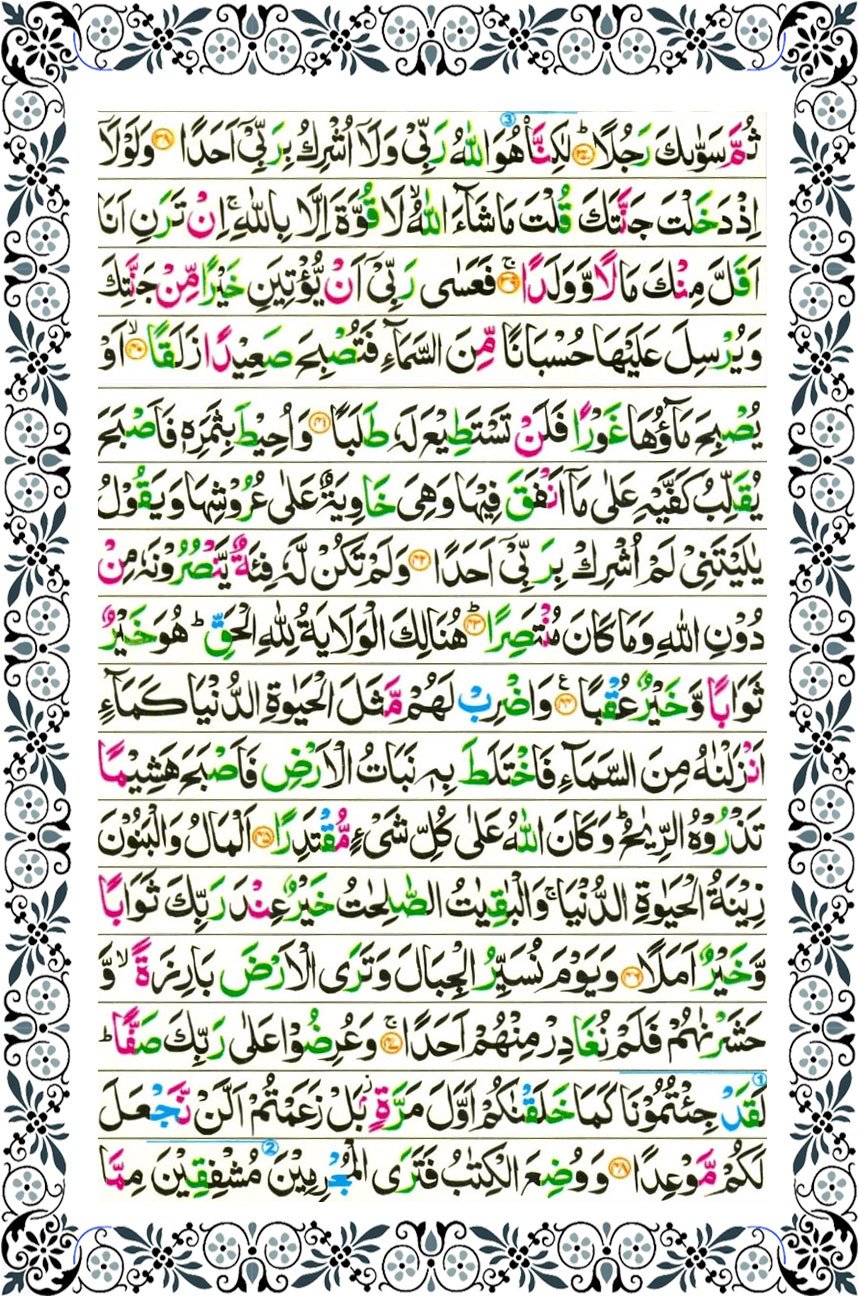 ③
ثُمَّ سَوّٰىكَ رَجُلًا ؕ﴿۳۷﴾ لٰكِنَّا۠ هُوَ اللّٰهُ رَبِّیْ وَلَاۤ اُشْرِكُ بِرَبِّیْۤ اَحَدًا ﴿۳۸﴾ وَلَوْلَاۤ
اِذْ دَخَلْتَ جَنَّتَكَ قُلْتَ مَا شَآءَ اللّٰهُ ۙ لَا قُوَّةَ اِلَّا بِاللّٰهِ ۚ اِنْ تَرَنِ اَنَا
اَقَلَّ مِنْكَ مَالًا وَّوَلَدًا ۚ﴿۳۹﴾ فَعَسٰی رَبِّیْۤ اَنْ یُّؤْتِیَنِ خَیْرًا مِّنْ جَنَّتِكَ
وَیُرْسِلَ عَلَیْهَا حُسْبَانًا مِّنَ السَّمَآءِ فَتُصْبِحَ صَعِیْدًا زَلَقًا ۙ﴿۴۰﴾ اَوْ
یُصْبِحَ مَآؤُهَا غَوْرًا فَلَنْ تَسْتَطِیْعَ لَهٗ طَلَبًا ﴿۴۱﴾ وَاُحِیْطَ بِثَمَرِهٖ فَاَصْبَحَ
یُقَلِّبُ كَفَّیْهِ عَلٰی مَاۤ اَنْفَقَ فِیْهَا وَهِیَ خَاوِیَةٌ عَلٰی عُرُوْشِهَا وَیَقُوْلُ
یٰلَیْتَنِیْ لَمْ اُشْرِكْ بِرَبِّیْۤ اَحَدًا ﴿۴۲﴾ وَلَمْ تَكُنْ لَّهٗ فِئَةٌ یَّنْصُرُوْنَهٗ مِنْ
دُوْنِ اللّٰهِ وَمَا كَانَ مُنْتَصِرًا ؕ﴿۴۳﴾ هُنَالِكَ الْوَلَایَةُ لِلّٰهِ الْحَقِّ ؕ هُوَ خَیْرٌ
ثَوَابًا وَّخَیْرٌ عُقْبًا ﴿۴۴﴾ وَاضْرِبْ لَهُمْ مَّثَلَ الْحَیٰوةِ الدُّنْیَا كَمَآءٍ
اَنْزَلْنٰهُ مِنَ السَّمَآءِ فَاخْتَلَطَ بِهٖ نَبَاتُ الْاَرْضِ فَاَصْبَحَ هَشِیْمًا
تَذْرُوْهُ الرِّیٰحُ ؕ وَكَانَ اللّٰهُ عَلٰی كُلِّ شَیْءٍ مُّقْتَدِرًا ﴿۴۵﴾ اَلْمَالُ وَالْبَنُوْنَ
زِیْنَةُ الْحَیٰوةِ الدُّنْیَا ۚ وَالْبٰقِیٰتُ الصّٰلِحٰتُ خَیْرٌ عِنْدَ رَبِّكَ ثَوَابًا
وَّخَیْرٌ اَمَلًا ﴿۴۶﴾ وَیَوْمَ نُسَیِّرُ الْجِبَالَ وَتَرَی الْاَرْضَ بَارِزَةً ۙ وَّ
حَشَرْنٰهُمْ فَلَمْ نُغَادِرْ مِنْهُمْ اَحَدًا ۚ﴿۴۷﴾ وَعُرِضُوْا عَلٰی رَبِّكَ صَفًّا ؕ
①
لَقَدْ جِئْتُمُوْنَا كَمَا خَلَقْنٰكُمْ اَوَّلَ مَرَّةٍۭ ؗ بَلْ زَعَمْتُمْ اَلَّنْ نَّجْعَلَ
②
لَكُمْ مَّوْعِدًا ﴿۴۸﴾ وَوُضِعَ الْكِتٰبُ فَتَرَی الْمُجْرِمِیْنَ مُشْفِقِیْنَ مِمَّا